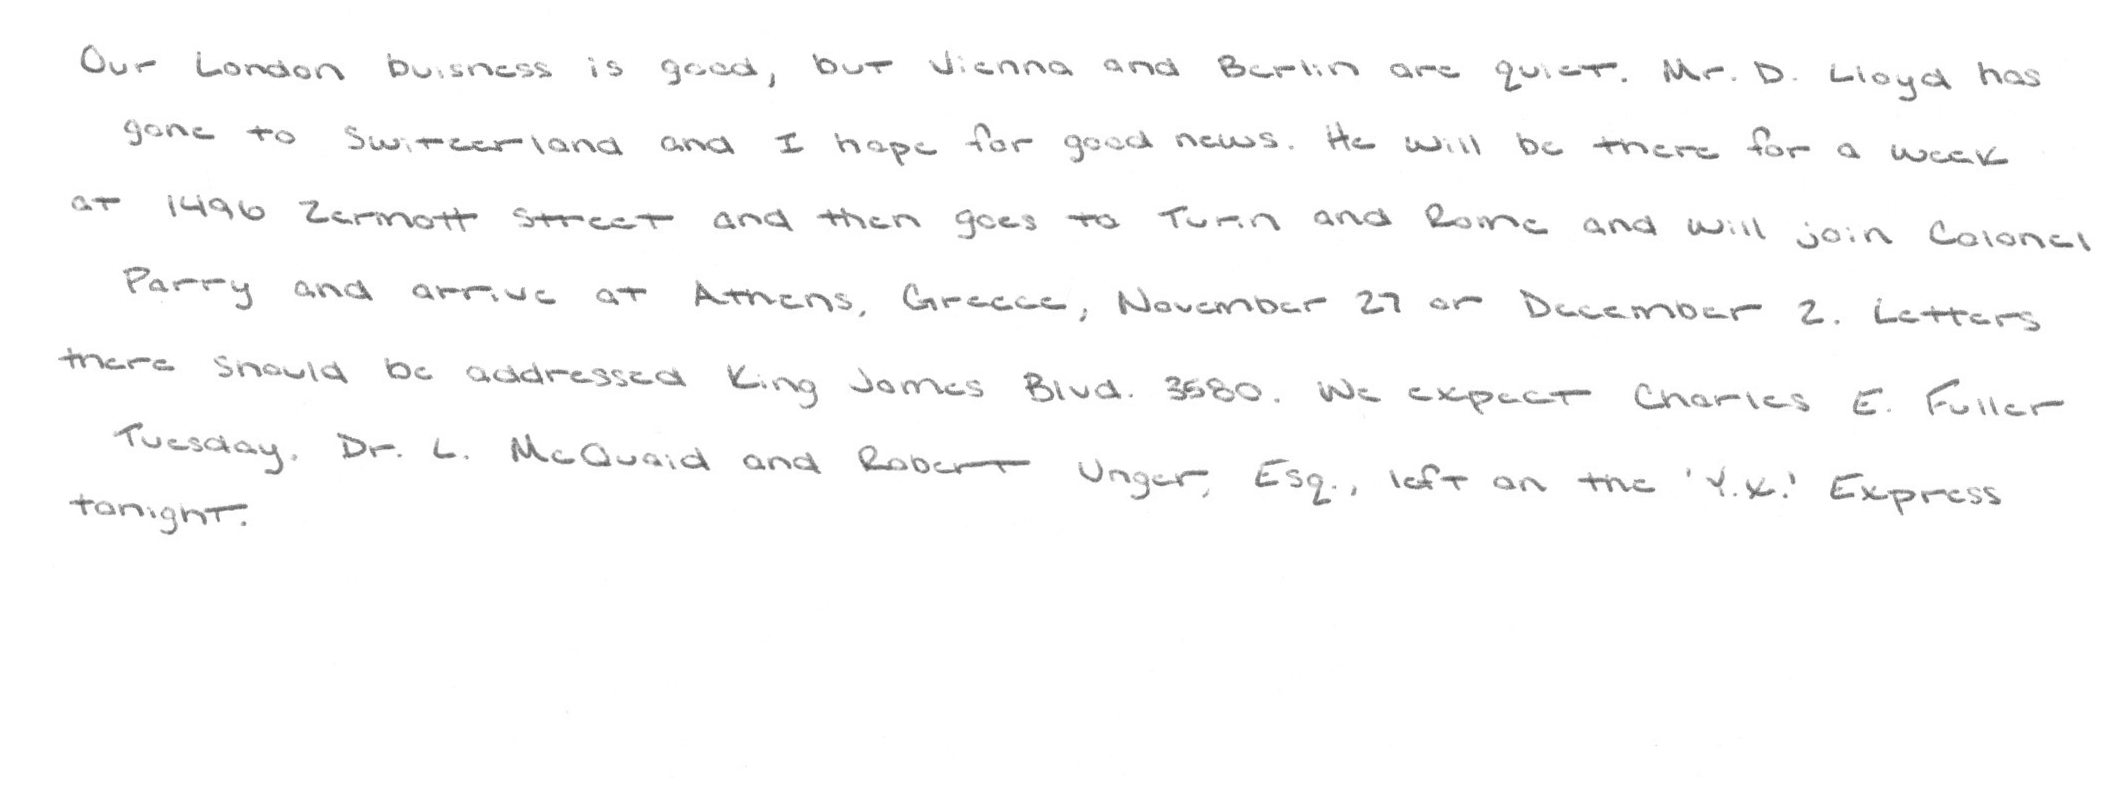 Our London buisness is good, but Vienna and Berlin are quiet. Mr. D. Lloyd has
gone to Switzerland and I hope for good news. He will be there for a week
at 1496 Zermott Street and then goes to Turin and Rome and will join Colonel
Parry and arrive at Athens, Greece, November 27 or December 2. Letters
there should be addressed King James Blvd. 3580. We expect Charles E. Fuller
Tuesday. Dr. L. McQuaid and Robert Unger, Esq., left on the 'Y.X.' Express
tonight.